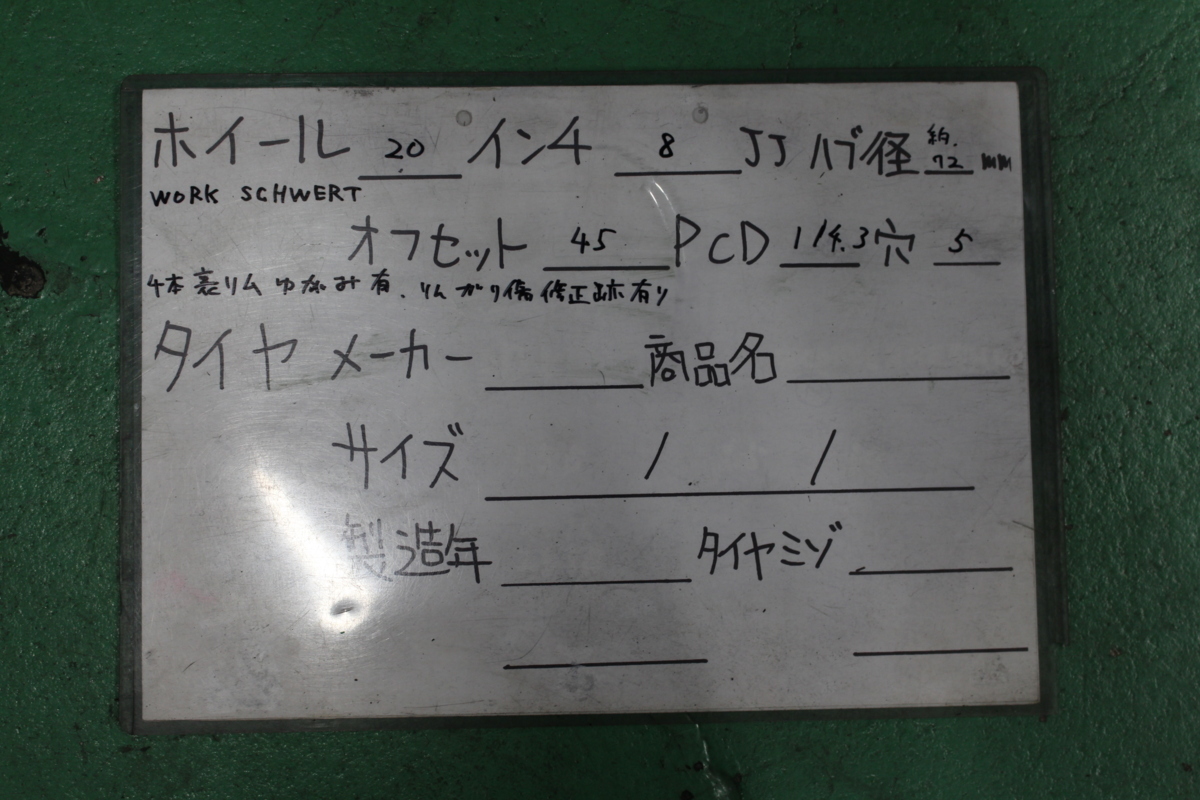 ホイール 20 インチ 8 JJ ハブ径 約.72 mm
WORK SCHWERT
オフセット 45 PCD 114.3 穴 5
4本裏リム ゆがみ有、リムガリ傷修正跡有り
タイヤ メーカー 商品名
サイズ / /
製造年 タイヤミゾ